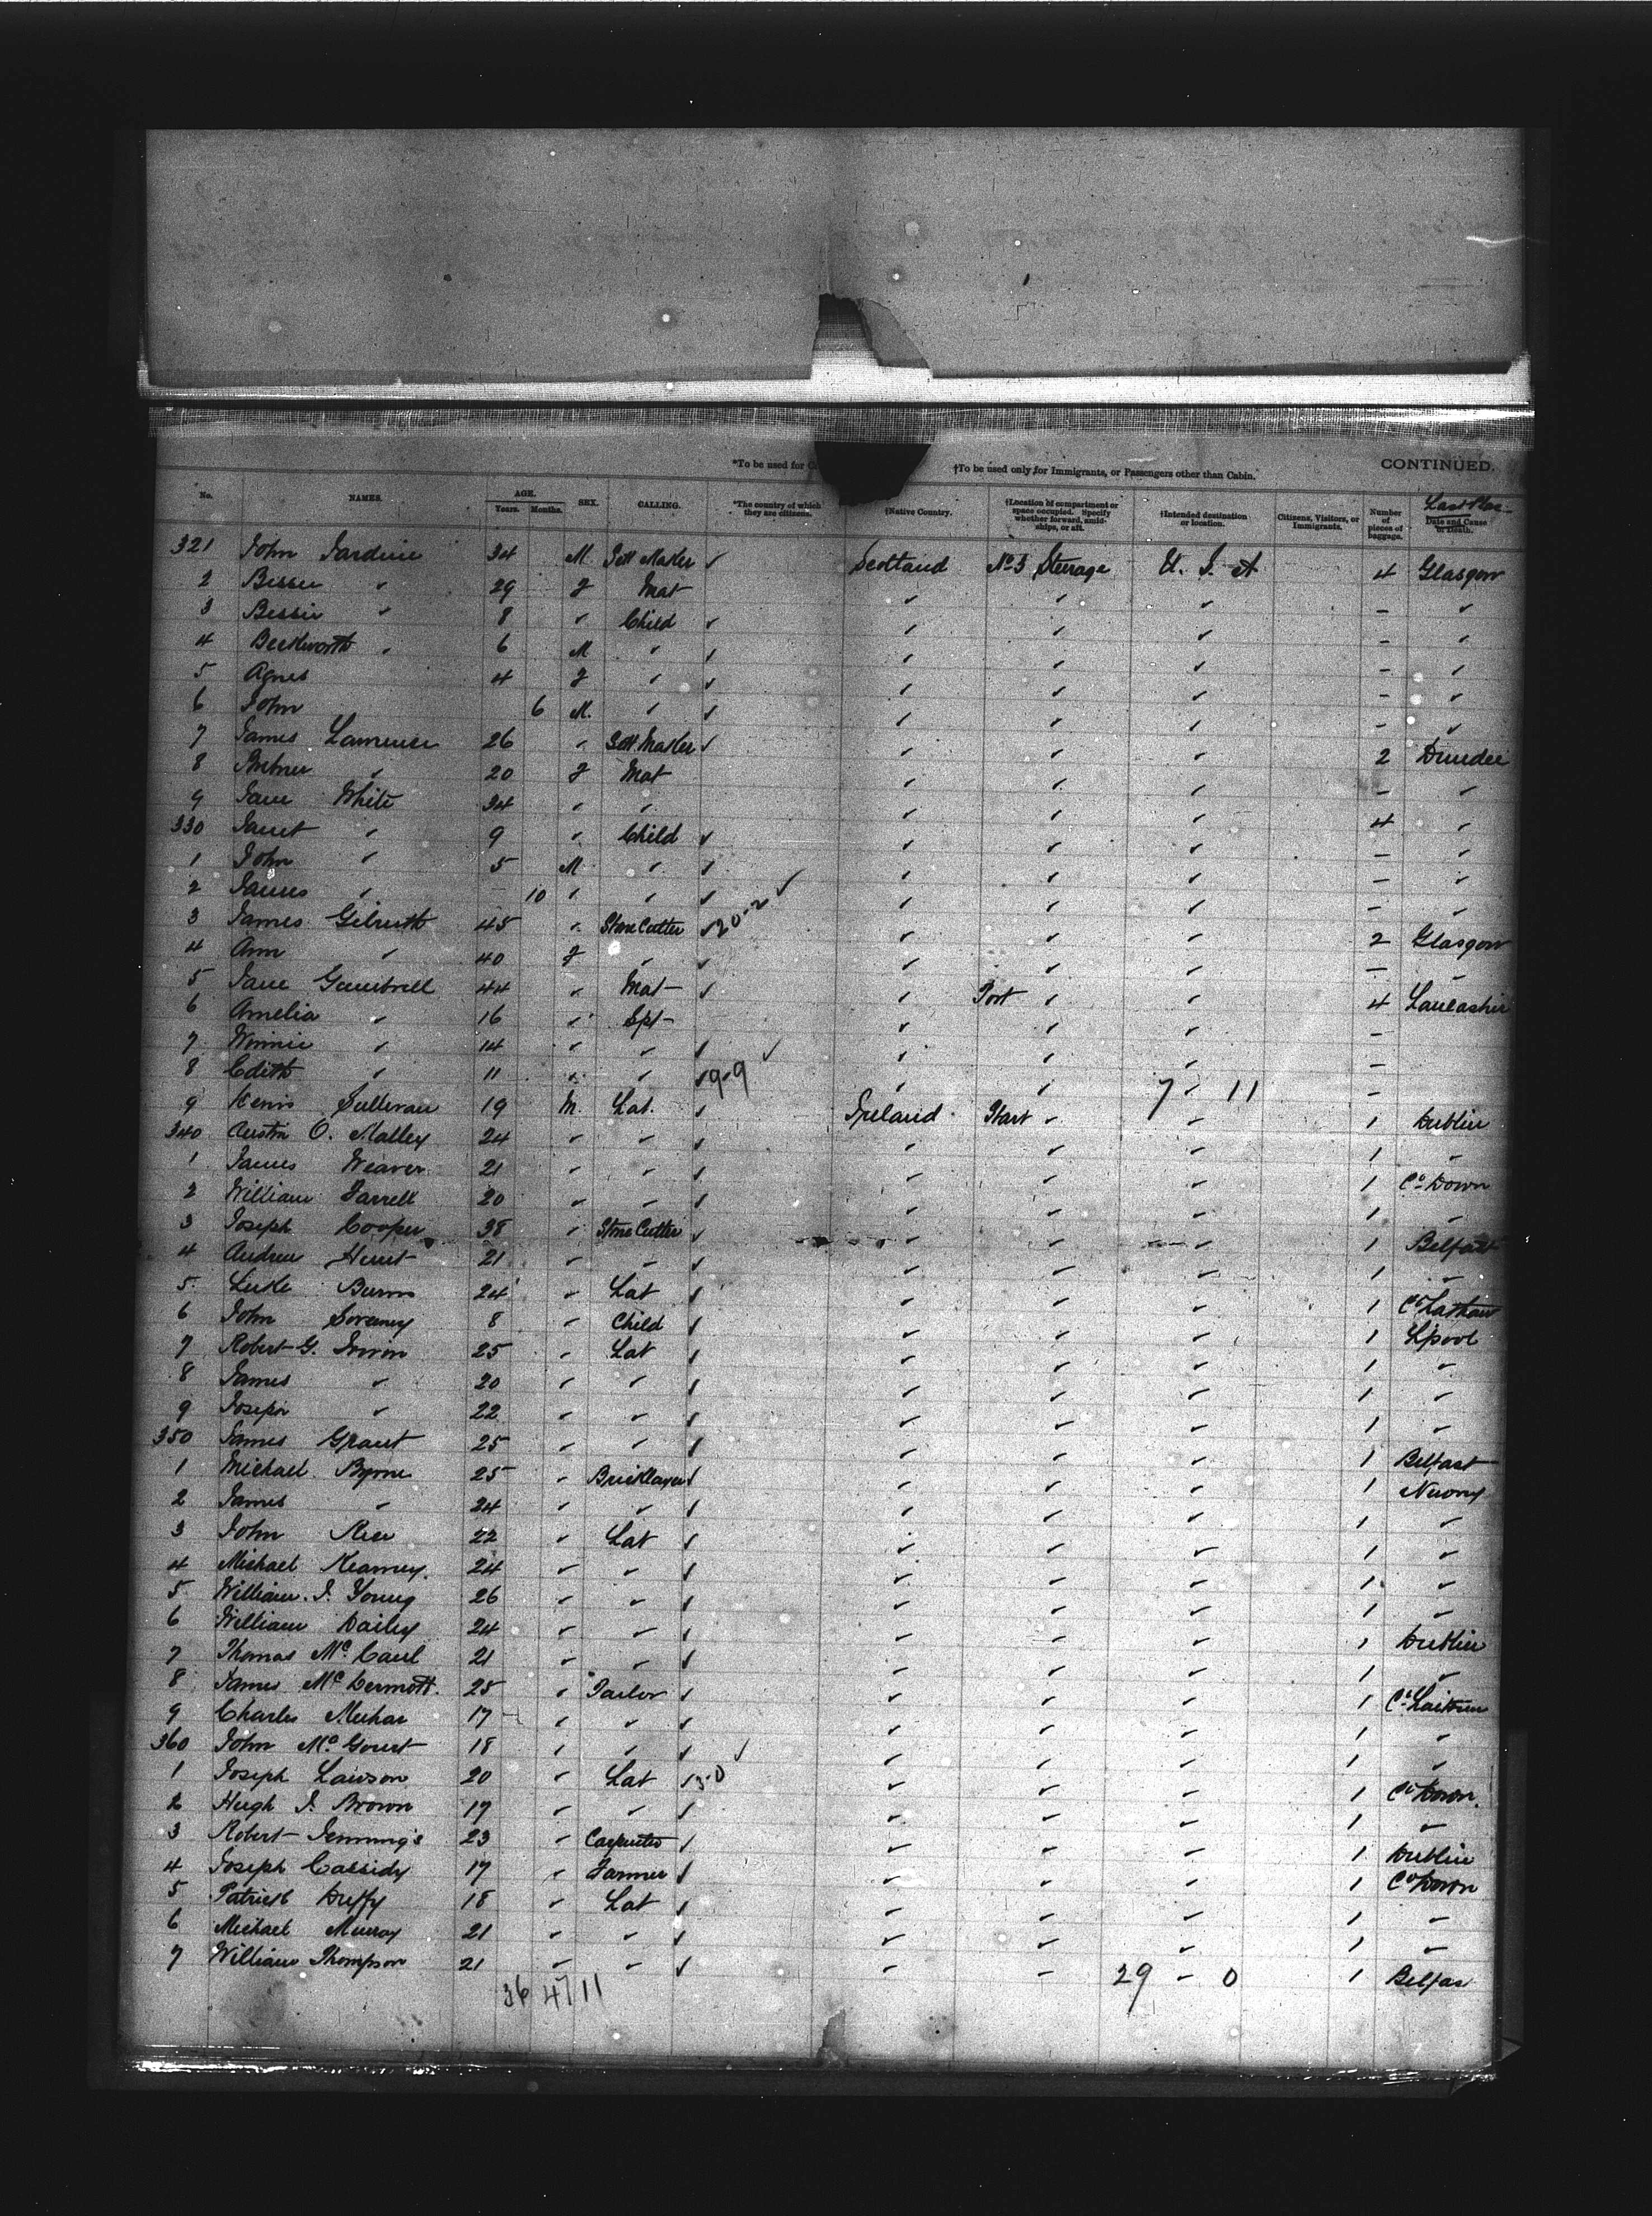 *To be used for C †To be used only for Immigrants, or Passengers other than Cabin. CONTINUED.
No. NAMES. AGE. Years. Months. SEX. CALLING. *The country of which they are citizens. †Native Country. †Location of compartment or space occupied. Specify whether forward, amidships, or aft. †Intended destination or location. Citizens, Visitors, or Immigrants. Number of pieces of baggage. Date and Cause of Death.
321 John Jardine 34 M ✓ Scotland No 3 Steerage U. S. A 4 Glasgow
2 Bessie " 29 f Mat ✓ ✓ ✓ – ✓
3 Bessie " 8 " Child ✓ ✓ ✓ ✓ – ✓
4 Beckworth " 6 M " ✓ ✓ ✓ ✓ – ✓
5 Agnes 4 f " ✓ ✓ ✓ ✓ – ✓
6 John 6 M. " ✓ ✓ ✓ ✓ – ✓
7 James Lawrence 26 " ✓ ✓ ✓ ✓ 2 Dundee
8 " 20 f Mat ✓ ✓ ✓ – ✓
9 Jane White 34 " " ✓ ✓ ✓ 4 ✓
330 Janet " 9 " Child ✓ ✓ ✓ ✓ – ✓
1 John " 5 M " ✓ ✓ ✓ ✓ – ✓
2 James " – 10 " " ✓ ✓ ✓ ✓ – ✓
3 James Gilruth 45 " Stone Cutter ✓ 20-2 ✓ ✓ ✓ ✓ 2 Glasgow
4 Ann " 40 f " ✓ ✓ ✓ ✓ – –
5 Jane 44 " Mat ✓ ✓ Port ✓ ✓ 4 Lancashir
6 Amelia " 16 " Spt – ✓ ✓ ✓ –
7 Winnie " 14 " " ✓ ✓ ✓ ✓ ✓ –
8 Edith " 11 " " ✓ 9-9 ✓ ✓ 7 - 11 –
9 Denis Sullivan 19 M. Lab. ✓ Ireland Start ✓ ✓ 1 Dublin
340 Austin O. Malley 24 " " ✓ ✓ ✓ ✓ 1 "
1 James Weaver 21 " " ✓ ✓ ✓ ✓ 1 Co Down
2 William Farrell 20 " " ✓ ✓ ✓ ✓ 1 "
3 Joseph Cooper 38 " Stone Cutter ✓ ✓ ✓ ✓ 1 Belfast
4 Andrew Hunt 21 " " ✓ ✓ ✓ ✓ 1 "
5 Luke Burns 24 " Lab ✓ ✓ ✓ ✓ 1
6 John Sweeney 8 " Child ✓ ✓ ✓ ✓ 1 L'pool
7 Robert G. Irwin 25 " Lab ✓ ✓ ✓ ✓ 1 "
8 James " 20 " " ✓ ✓ ✓ ✓ 1 "
9 Joseph " 22 " " ✓ ✓ ✓ ✓ 1 "
350 James Grant 25 " " ✓ ✓ ✓ ✓ 1 Belfast
1 Michael Byrne 25 " Bricklayer ✓ ✓ ✓ ✓ 1 Newry
2 James " 24 " " ✓ ✓ ✓ ✓ 1 "
3 John Rice 22 " Lab ✓ ✓ ✓ ✓ 1 "
4 Michael Kearney. 24 " " ✓ ✓ ✓ ✓ 1 "
5 William. J. Young 26 " " ✓ ✓ ✓ ✓ 1 "
6 William Dailey 24 " " ✓ ✓ ✓ ✓ 1 Dublin
7 Thomas Mc Caul 21 " " ✓ ✓ ✓ ✓ 1 "
8 James Mc Dermott. 25 " Tailor ✓ ✓ ✓ ✓ 1 Co Laitrim
9 Charles Meehan 17 " " ✓ ✓ ✓ ✓ 1 "
360 John Mc Gourt 18 " " ✓ ✓ ✓ ✓ ✓ 1 "
1 Joseph Lawson 20 " Lab ✓ 3-0 ✓ ✓ ✓ 1 Co Down.
2 Hugh J. Brown 17 " " ✓ ✓ ✓ ✓ 1 "
3 Robert Jennings 23 " Carpenter ✓ ✓ ✓ ✓ 1 Dublin
4 Joseph Cassidy 17 " Farmer ✓ ✓ ✓ ✓ 1 Co Down
5 Patrick Duffy 18 " Lab ✓ ✓ ✓ ✓ 1 "
6 Michael Murray 21 " " ✓ ✓ ✓ ✓ 1 "
7 William Thompson 21 " " ✓ ✓ – 29 - 0 1 Belfas
36 47 11